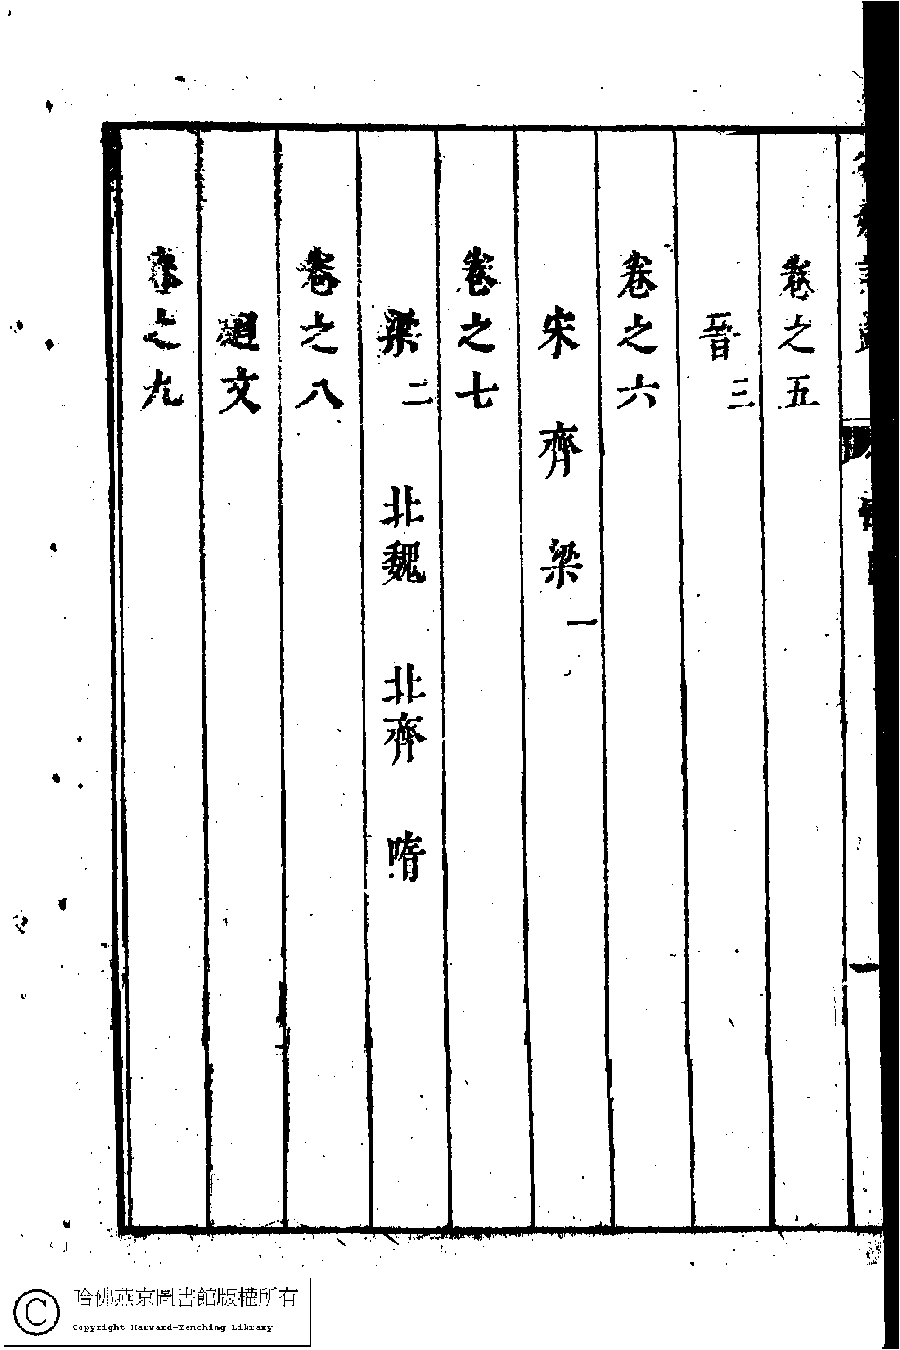 卷之五
晉三
卷之六
宋 齊 梁一
卷之七
梁二 北魏 北齊 隋
卷之八
廻文
卷之九
哈佛燕京圖書館版權所有
Copyright Harvard-Yenching Library